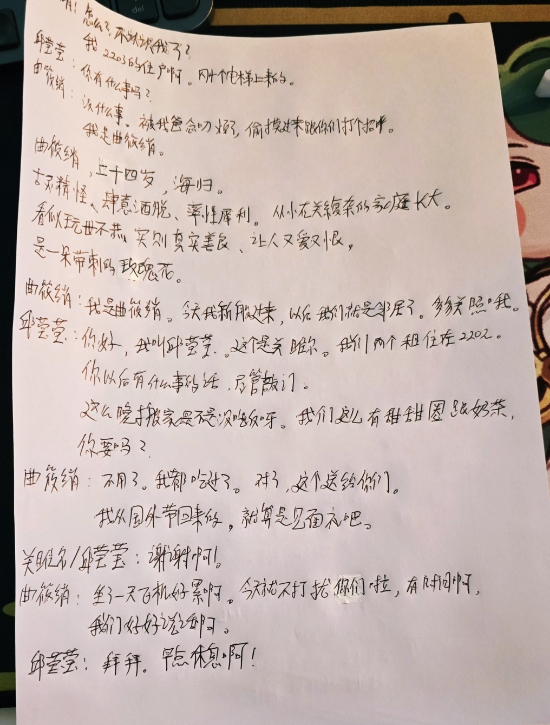 怎么？不认识我了？
我 2203的住户啊。两个电梯上来的。
邱莹莹：你有什么事吗？
曲筱绡：没什么事。被我爸念叨烦了，偷摸过来跟你们打个招呼。
我是曲筱绡。
曲筱绡，二十四岁，海归。
古灵精怪、肆意洒脱、率性犀利。从小在关系复杂的家庭长大。
看似玩世不恭，实则真实善良、让人又爱又恨，
是一朵带刺的玫瑰花。
曲筱绡：我是曲筱绡。今天我新搬过来，以后我们就是邻居了。多多关照哦。
邱莹莹：你好，我叫邱莹莹。这个是关雎尔。我们两个租住在2202。
你以后有什么事的话，尽管敲门。
这么晚才搬家是不是没吃饭呀。我们这儿有甜甜圈跟奶茶，
你要吗？
曲筱绡：不用了。我都吃过了。对了，这个送给你们。
我从国外带回来的，就算是见面礼吧。
关雎尔/邱莹莹：谢谢啊！
曲筱绡：坐了一天飞机好累啊。今天就不打扰你们啦，有时间啊，
我们好好说话啊。
邱莹莹：拜拜。早点休息啊！